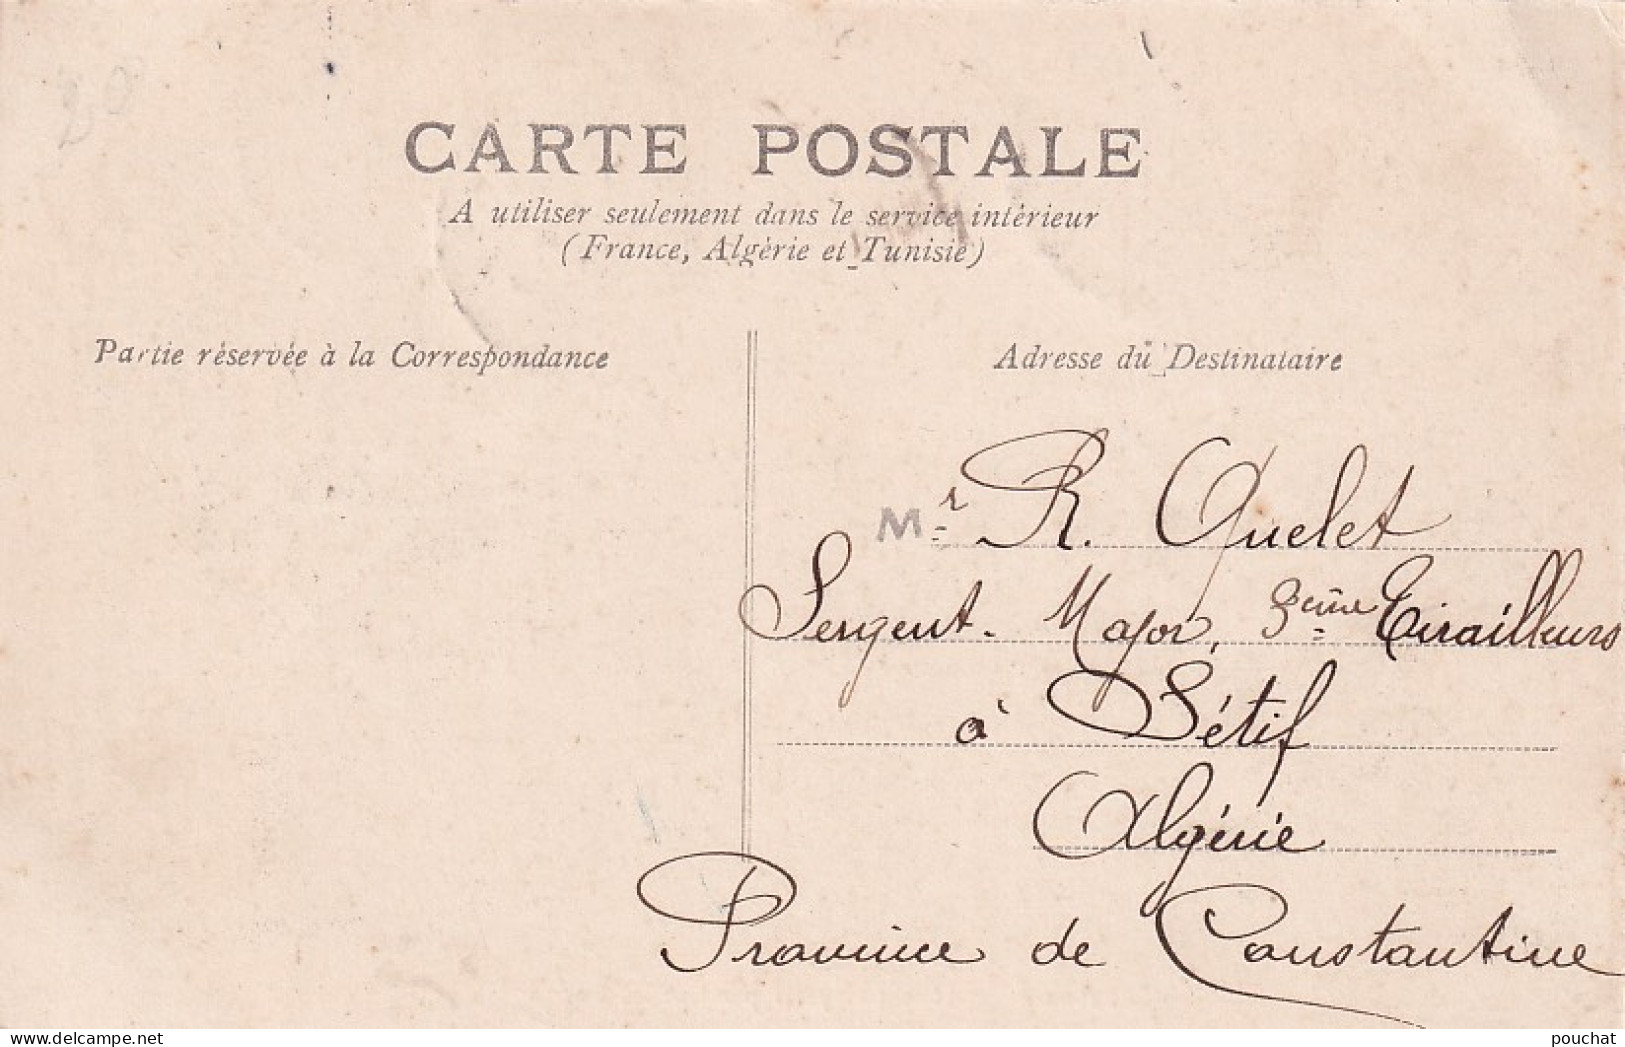 20
CARTE POSTALE
A utiliser seulement dans le service intérieur
(France, Algérie et Tunisie)
Partie réservée à la Correspondance
Adresse du Destinataire
Mr R. Quelet
Sergent-Major, 3eme Tirailleurs
à Sétif
Algérie
Province de Constantine
delcampe.net
pouchat